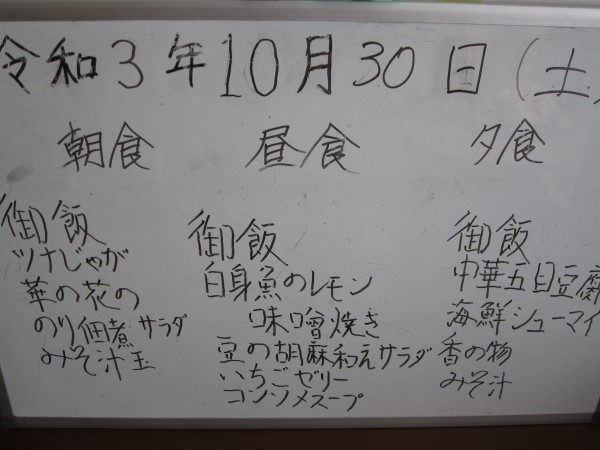 令和3年10月30日(土)
朝食
御飯
ツナじゃが
菜の花の
のり佃煮サラダ
みそ汁玉
昼食
御飯
白身魚のレモン
味噌焼き
豆の胡麻和えサラダ
いちごゼリー
コンソメスープ
夕食
御飯
中華五目豆腐
海鮮シューマイ
香の物
みそ汁